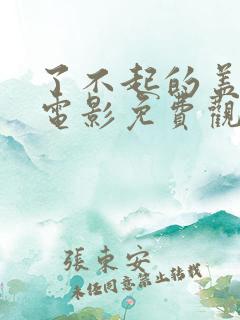 了不起的盖
電影免費觀
張東安
未经同意禁止转载